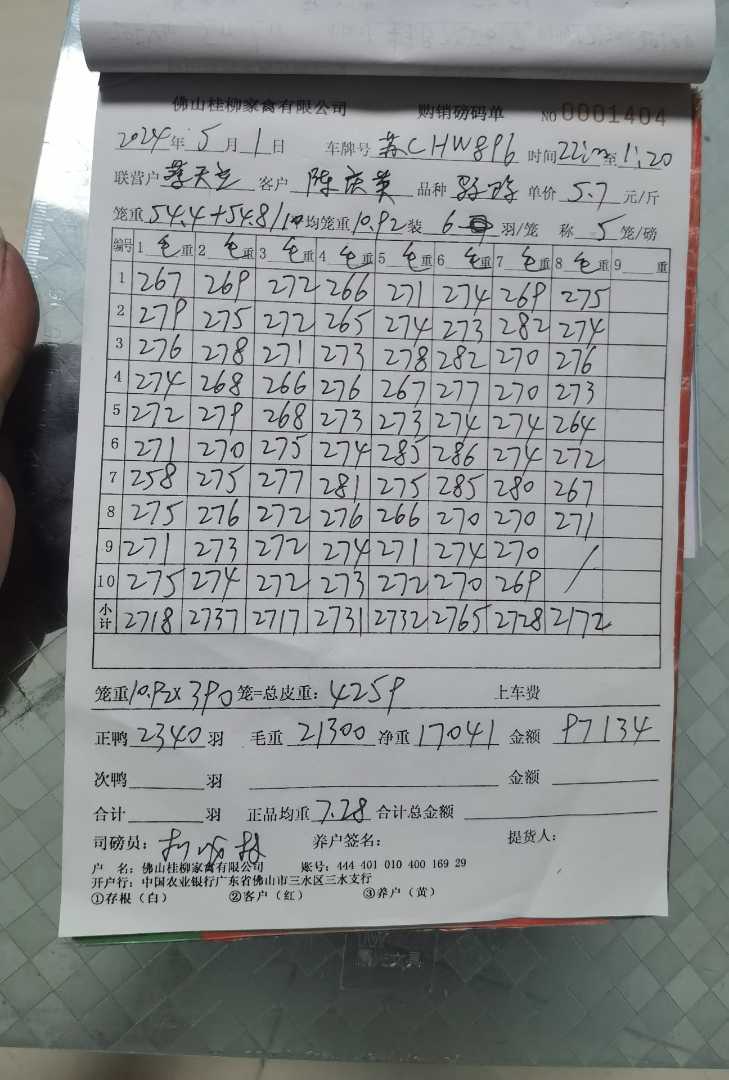 佛山桂柳家禽有限公司 购销磅码单 NO 0001404
2024年 5月 1日 车牌号 苏CHW896 时间 22:00至1:20
联营户 客户 陈庆英 品种 单价 5.7 元/斤
笼重 54.4+54.8/10 均笼重 10.92 装 6 羽/笼 称 5 笼/磅
编号 1 毛重 2 毛重 3 毛重 4 毛重 5 毛重 6 毛重 7 毛重 8 毛重 9 重
1 267 269 272 266 271 274 269 275
2 279 275 272 265 274 273 282 274
3 276 278 271 273 278 282 270 276
4 274 268 266 276 267 277 270 273
5 272 279 268 273 273 274 274 264
6 271 270 275 274 285 286 274 272
7 258 275 277 281 275 285 280 267
8 275 276 272 276 266 270 270 271
9 271 273 272 274 271 274 270 /
10 275 274 272 273 272 270 269 /
小计 2718 2737 2717 2731 2732 2765 2728 2172
笼重 10.92× 390 笼=总皮重: 4259 上车费
正鸭 2340 羽 毛重 21300 净重 17041 金额 97134
次鸭 羽 金额
合计 羽 正品均重 7.28 合计总金额
司磅员: 养户签名: 提货人:
户 名: 佛山桂柳家禽有限公司 账号: 444 401 010 400 169 29
开户行: 中国农业银行广东省佛山市三水区三水支行
①存根(白) ②客户(红) ③养户(黄)